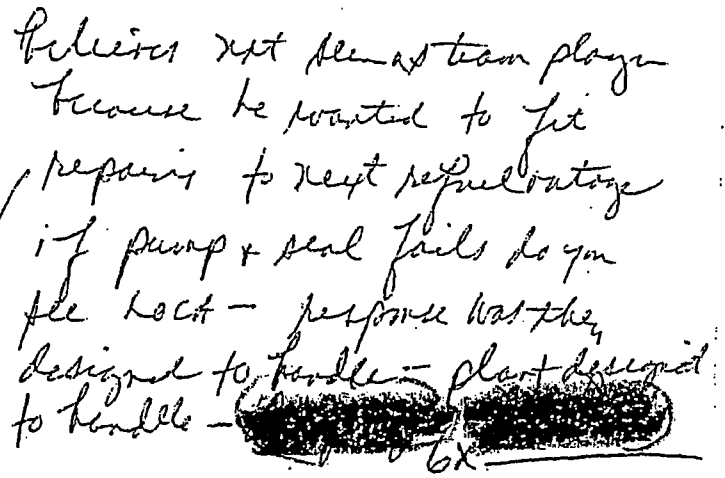 believes not seen as team player
because he wanted to
repairs to next refuel outage
if pump & seal fails do you
see LOCA - response was they
designed to handle - plant designed
to handle -
6x